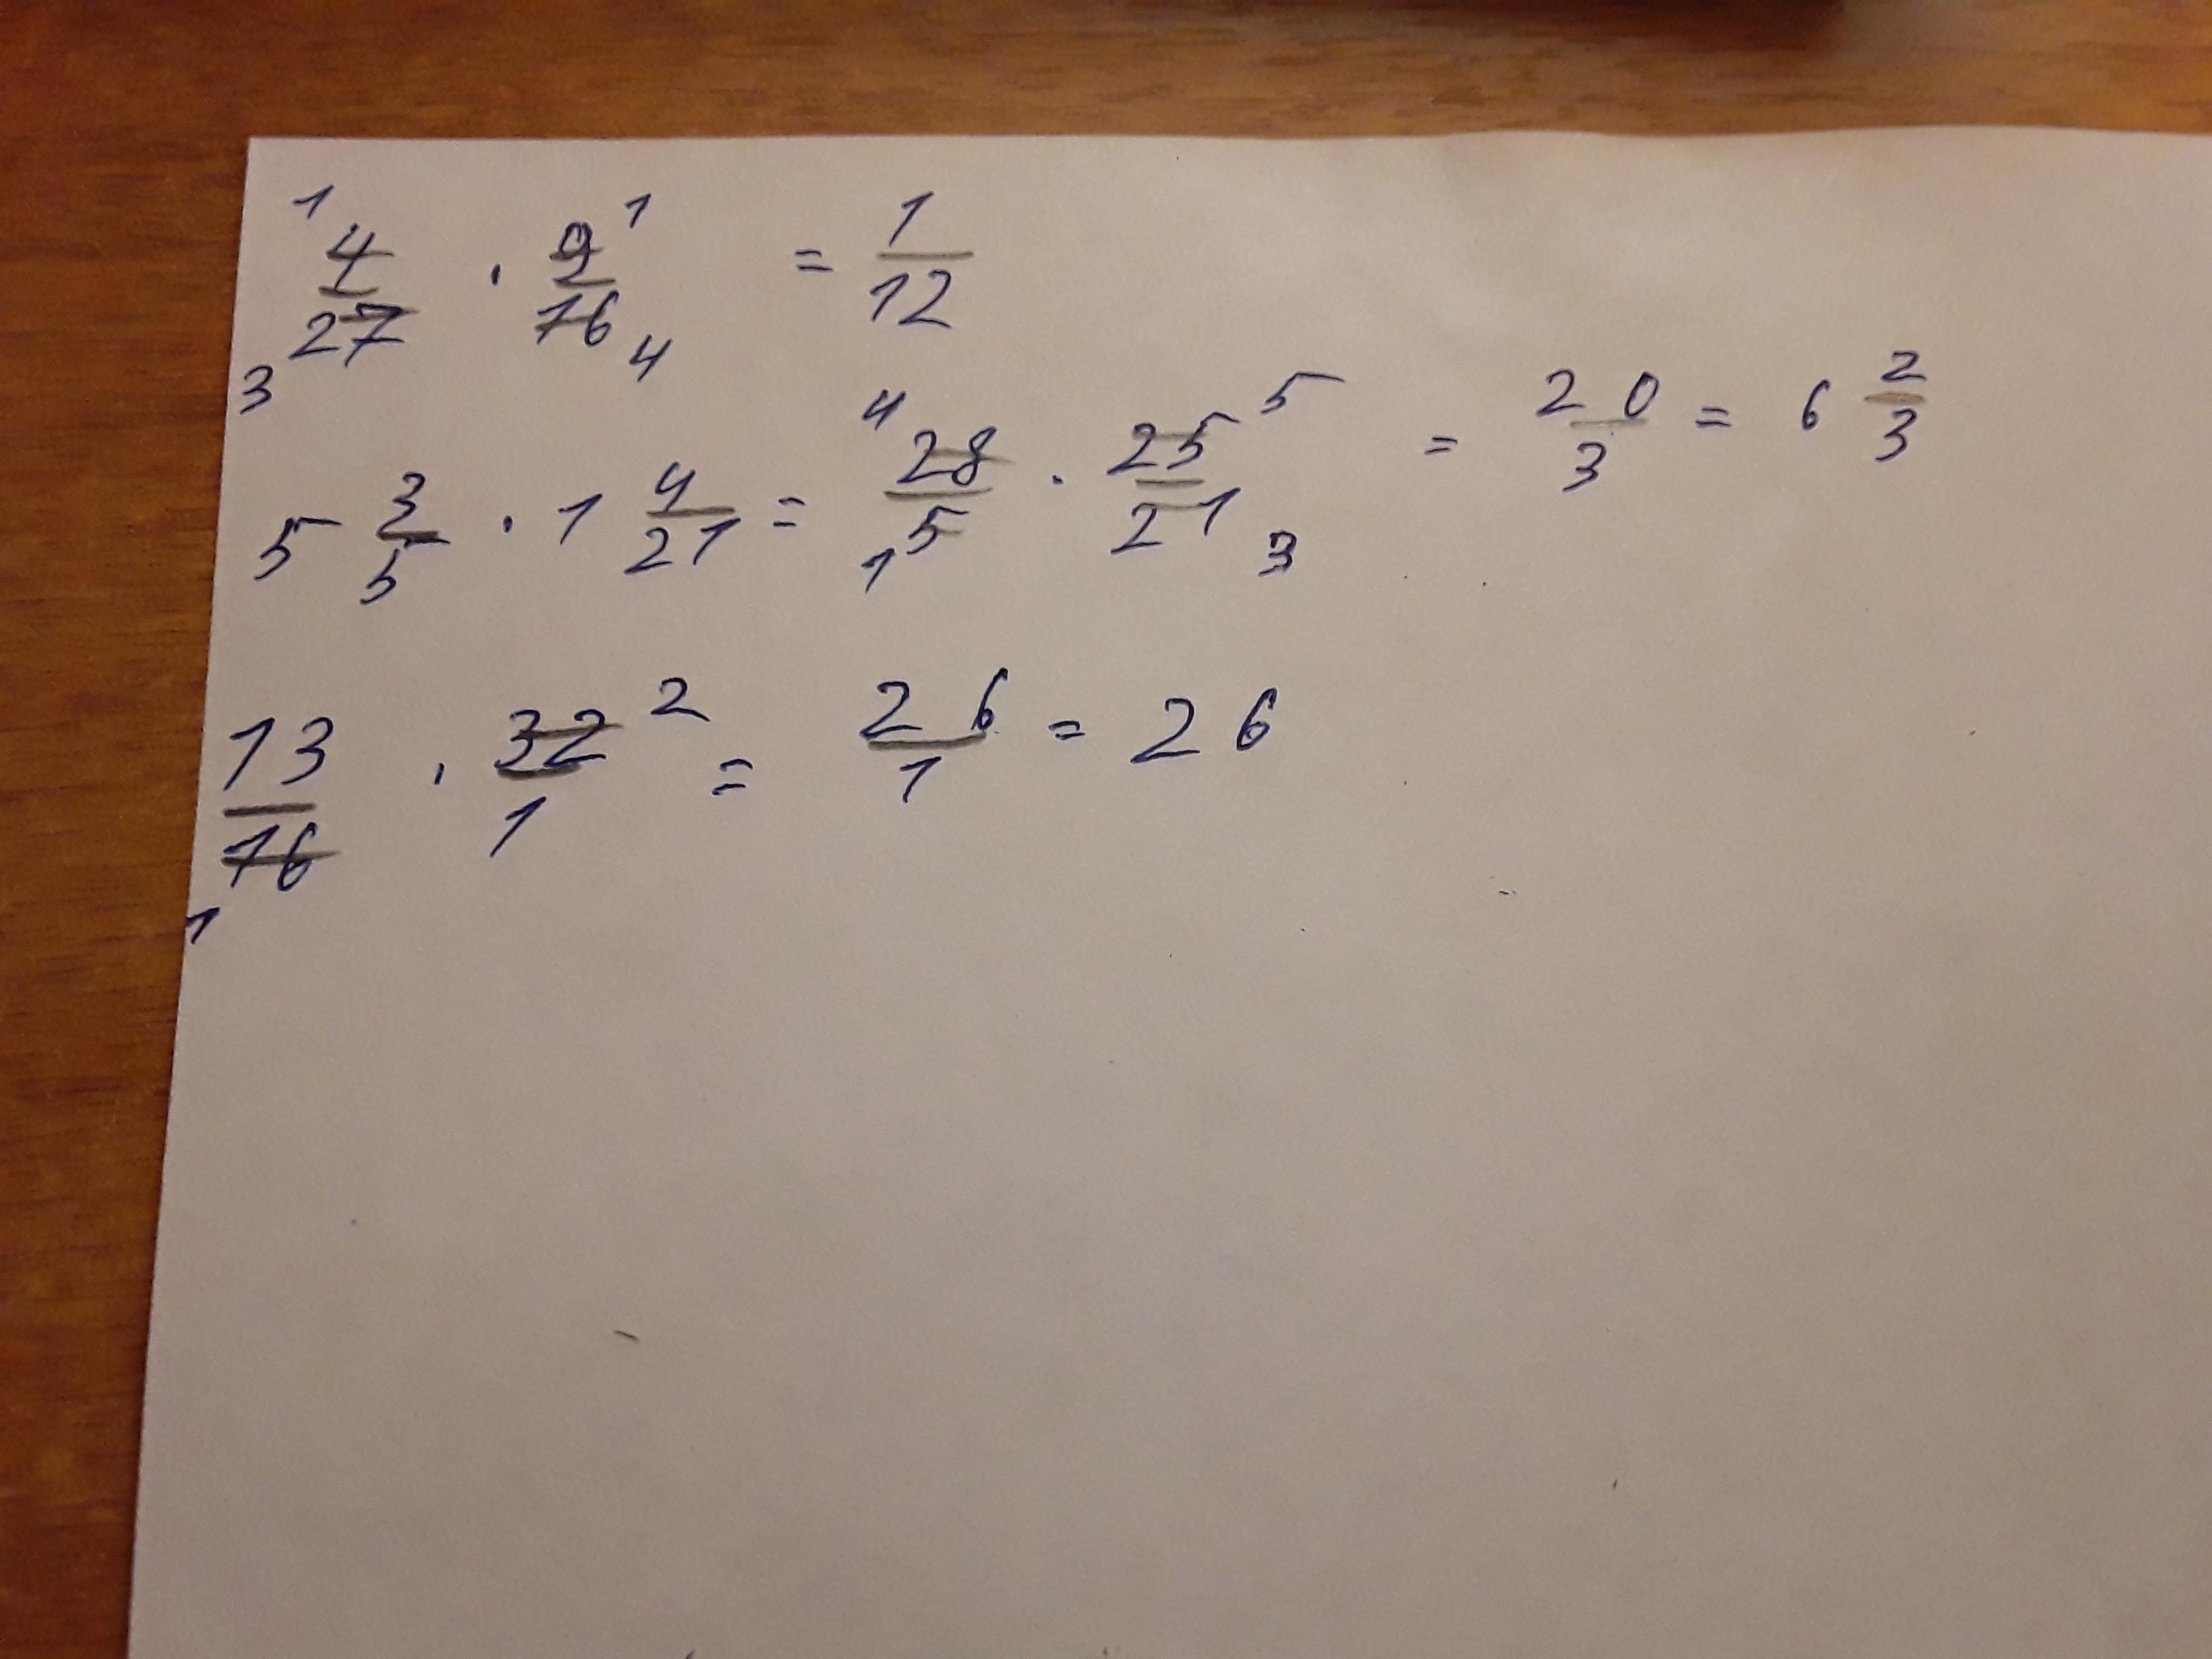 1 4/27 3 · 9/16 1 4 = 1/12
5 3/5 · 1 4/21 = 4 28/5 1 · 25/21 5 3 = 20/3 = 6 2/3
13/16 1 · 32/1 2 = 26/1 = 26